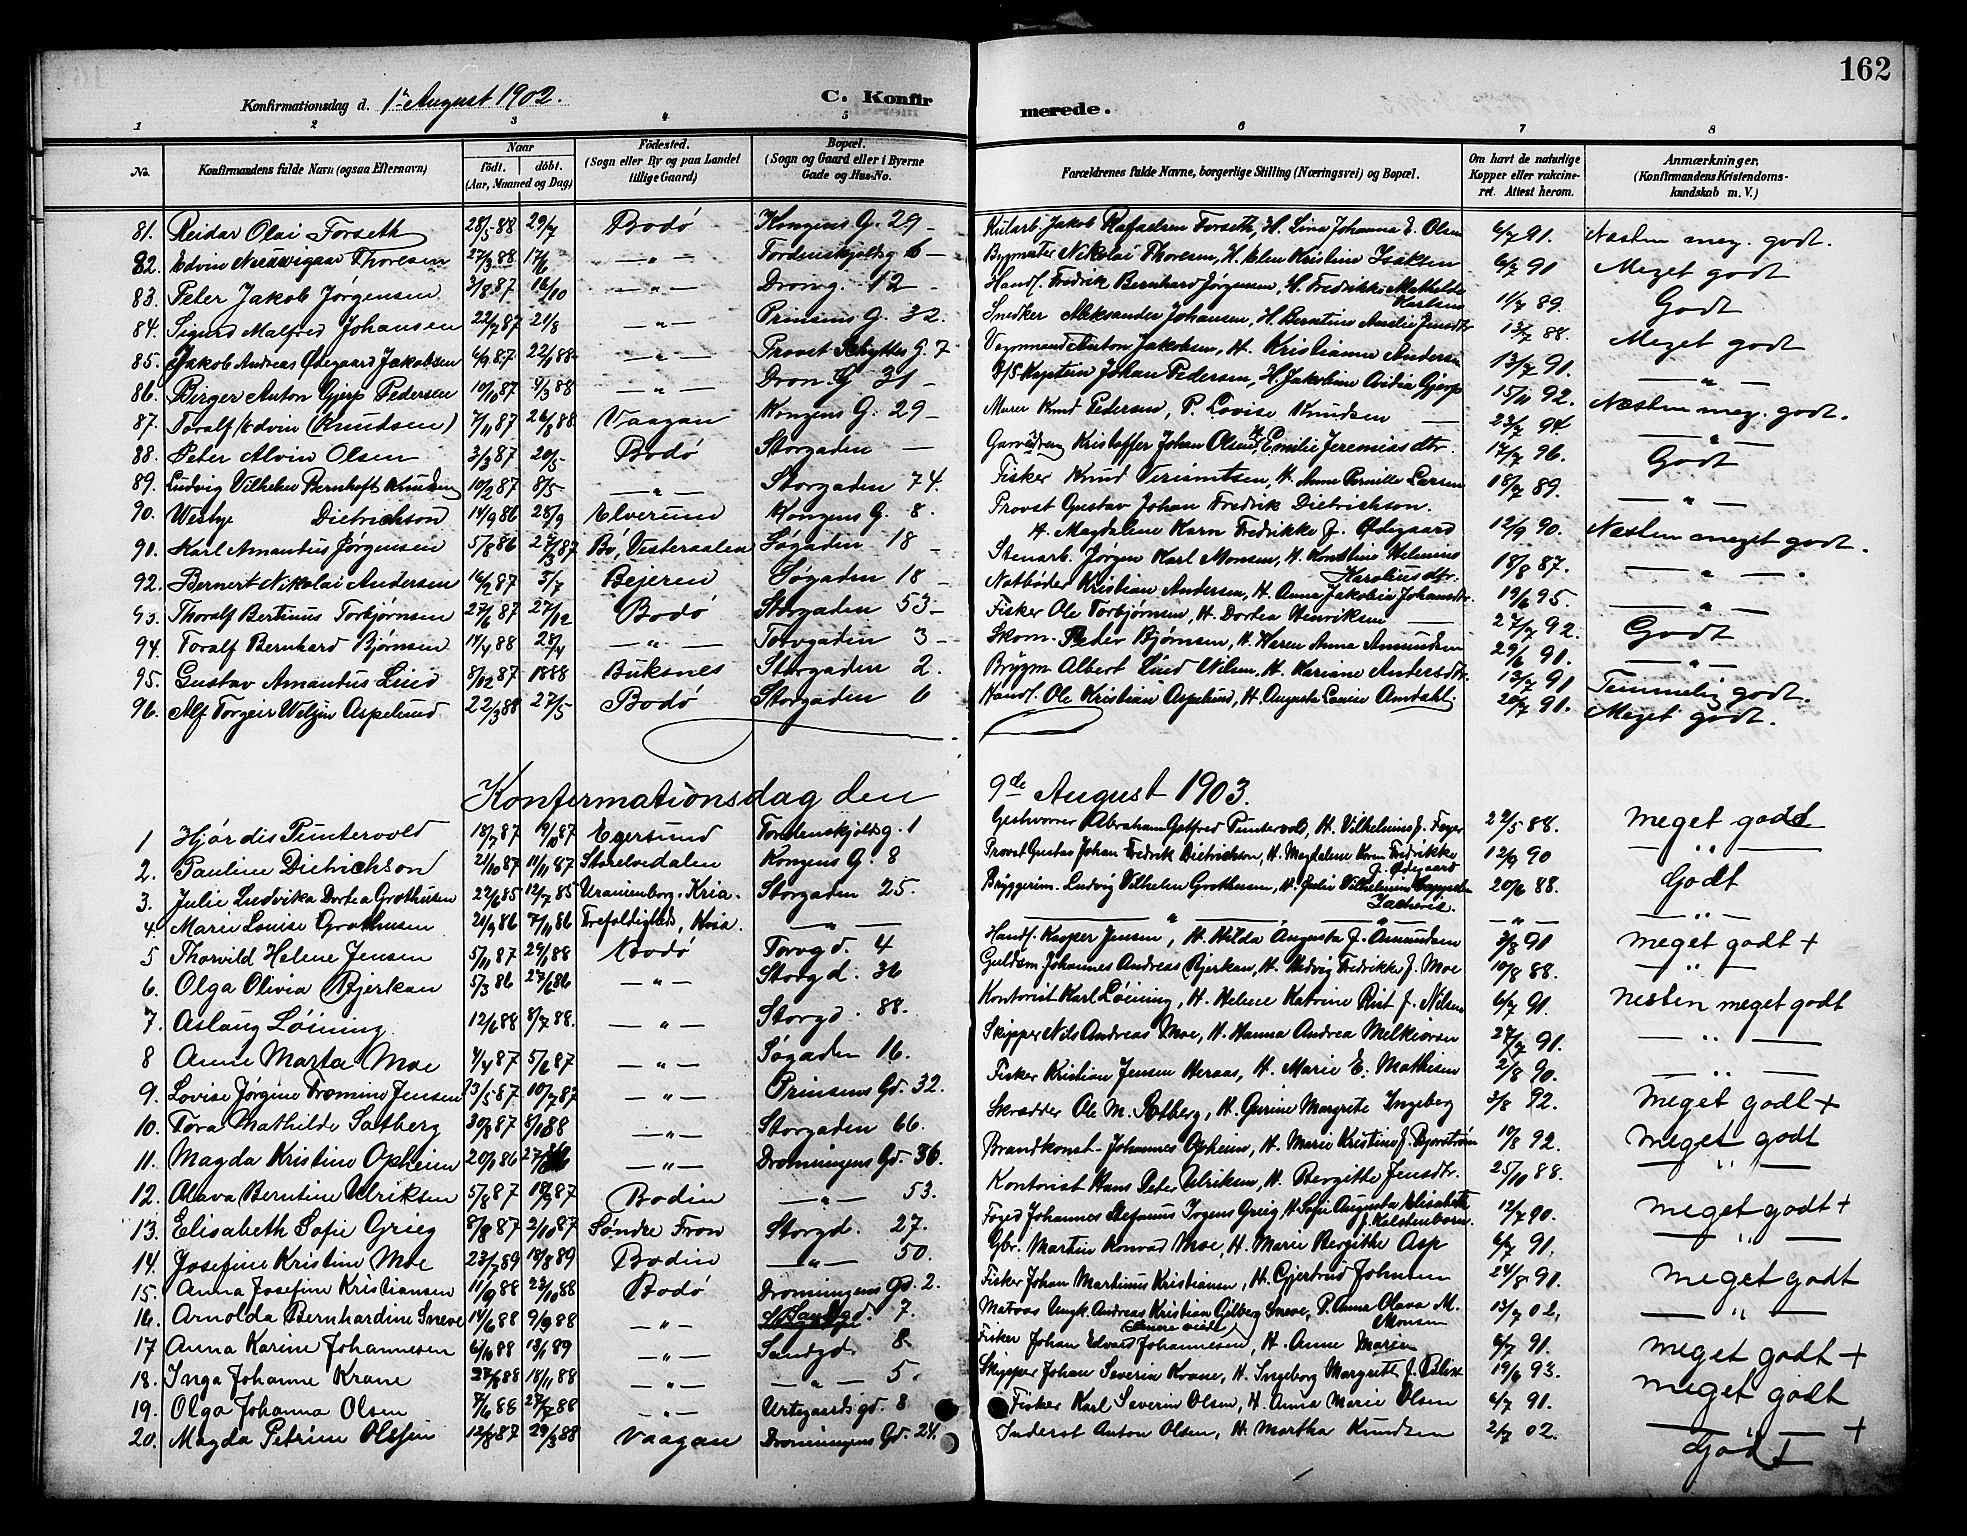 162
Konfirmationsdag d. 1ste August 1902. C. Konfirmerede.
1 2 3 4 5 6 7 8
No. Konfirmandens fulde Navn (ogsaa Efternavn) Naar Födt. döbt. (Aar, Maaned og Dag) Födested. (Sogn eller By og paa Landet tillige Gaard) Bopæl. (Sogn og Gaard eller i Byerne Gade og Hus-No. Forældrenes fulde Navne, borgerlige Stilling (Næringsvei) og Bopæl. Om havt de naturlige Kopper eller vakcineret. Attest herom. Anmærkninger, (Konfirmandens Kristendomskundskab m. V.)
81. Reidar Olai Forseth 28/5 88 29/7 Bodö Kongens G. 29 – Jakob Rafaelsen Forseth, H. Lina Johanna E. Olsen 6/7 91. Næsten meg. godt.
82. Edvin Thoresen 27/3 88 17/6 – " – Tordenskjoldsg 6 – Nikolai Thoresen, H. Elen Kristine Isaksen 6/7 91 Meget godt
83. Peter Jakob Jörgensen 3/8 87 16/10 – " – Drong. 12 – Handl. Fredrik Bernhard Jörgensen, H. Fredrikke Mathilde Karlsen 11/7 89. Godt
84. Sigurd Malfred Johansen 22/7 87 21/8 – " – Prinsens G. 32. Snedker Aleksander Johansen, H. Berntine Amalie Jensdtr 13/7 88. Meget godt
85. Jakob Andreas Ödegaard Jakobsen 6/9 87 22/1 88 – " – Provst Schyttes G. 7 Anton Jakobsen, H. Kristianna Andersen 13/7 91. – " –
86. Birger Anton Gjerp Pedersen 10/10 87 4/3 88 – " – Dron G 31 – D/S Kaptein Johan Pedersen, H. Jakobine Ovidia Gjerp 15/11 92. Næsten meg. godt.
87. Toralf Edvin (Knudsen) 7/11 87 26/8 88 Vaagan Kongens G. 29 – Murer Knud Pedersen, P. Lovise Knudsen 23/7 94 – " –
88. Peter Alvin Olsen 3/3 87 20/5 Bodö Storgaden – Kristoffer Johan Olsen, H. Emilie Jeremiasdtr. 17/7 96. Godt
89. Ludvig Vilhelm Bernhoft Knudsen 10/2 87 8/5 – " – Storgaden 74. Fisker Knud Verisntsen, H. Anne Pernille Larsen 18/7 89. – " –
90. Westye Dietrichson 14/9 86 28/9 Elverum Kongens G. 8. Provst Gustav Johan Fredrik Dietrichson. H. Magdalene Karn Fredrikke f. Ödegaard 12/9 90. Næsten meget godt.
91. Karl Amandus Jörgensen 5/8 86 27/3 87 Bö, Vesteraalen Søgaden 18 – Stenarb. Jörgen Karl Monsen, H. Helmine Karoliusdtr. 18/8 87. – " –.
92. Bernert Nikolai Andersen 16/2 87 5/7 Bejeren Søgaden 18 – Natbøder Kristian Andersen, H. Anna Jakobia Johansdtr. 19/6 95. – " –
93. Thoralf Bertinus Torbjörnsen 27/6 87 27/12 Bodö Storgaden 53 – Fisker Ole Torbjörnsen, H. Dortea Henriksen 27/7 92. Godt
94. Toralf Bernhard Bjørnsen 14/4 88 28/4 – " – Torvgaden 3 – Skom. Peder Bjørnsen, H. Karen Anna Amundsen 29/6 91. – " –
95. Gustav Amandus Lind 8/12 87 1888 Buksnes Storgaden 2. Brygm. Albert Lind Nilsen, H. Kariane Andersdtr. 13/7 91 Temmelig godt.
96. Alf Torgeir Weltzin Aspelund 22/3 88 27/5 Bodö Storgaden 6 Handl. Ole Kristian Aspelund, H. Augusta Lovise Amdahl. 20/7 91. Meget godt.
Konfirmationsdag den 9de August 1903.
1 Hjördis Puntervold 18/7 87 19/10 87 Egersund Tordenskjoldsg. 1 Geschworner Abraham Gotfred Puntervold, H. Vilhelmine f. Feyer 22/5 88. Meget godt
2. Pauline Dietrichson 21/10 87 11/11 87 Storelvedalen Kongens G. 8 Provst Gustav Johan Fredrik Dietrichson, H. Magdalene Karen Fredrikke f. Ödegaard 12/9 90 – " –
3. Julie Ludvika Dortea Grothusen 27/6 85 12/7 85 Uranienborg. Kria. Storgaden 25. Bryggerim. Ludvig Vilhelm Grothusen, H. Julie Vilhelmine 20/6 88. Godt
4. Marie Louise Grothusen 21/9 86 7/11 86 Trefoldigheds, Kria. – " – – " – – " – – " –
5 Thorvild Helene Jensen 5/11 87 29/1 88 Bodö Torvgd. 4 Handl. Kasper Jensen, H. Hilda Augusta f. Amundsen 3/8 91 meget godt +
6. Olga Olivia Bjerkan 5/3 86 27/6 86 – " – Storgd. 36 Guldsm Johannes Andreas Bjerkan, H. Hedvig Fredrikke f. Moe 10/8 88. – " –
7. Aslaug Löining 12/6 88 8/7 88. – " – Storgd. 88. Kontorist Karl Löining, H. Helene Katrine Rist f. Nilsen 6/7 91. nesten meget godt
8 Anne Marta Moe 4/4 87 5/6 87 – " – Søgaden 16. Skipper Nils Andreas Moe, H. Hanna Andrea Melkiorsen 27/7 91. – " –
9. Lovise Jörgine Fromine Jensen 13/5 87 10/7 87 – " – Prinsens Gd. 32. Fisker Kristian Jensen Heraas, H. Marie E. Mathisen 2/8 90. – " –
10. Tora Mathilde Satberg 30/8 87 8/1 88 – " – Storgaden 66. Skrædder Ole M. Satberg, H. Gurine Margrete Ingeberg 3/8 92. Meget godt +
11. Magda Kristine Opheim 20/9 86 – " – Dronningens Gd. 36. Brandkonst. Johannes Opheim, H. Marie Kristine f. Bjorström 10/8 92. meget godt
12. Olava Berntine Ulriksen 5/8 87 18/9 87 Bodin – " – 53. Kontorist Hans Peter Ulriksen, H. Bergitte Jensdtr. 25/11 88. – " –
13. Elisabeth Sofie Grieg 8/8 87 2/10 87 Søndre Fron Storgd. 27. Foged Johannes Stefanus Irgens Grieg, H. Sofie Augusta Elisabeth f. Kelstenborn. 12/7 90. meget godt +
14. Josefine Kristine Moe 23/7 89 18/8 89 Bodin – " – 50. Gbr. Martin Konrad Moe, H. Marie Bergitte Asp 6/7 91. – " –
15. Anna Josefine Kristiansen 11/9 88 23/10 88 Bodö Dronningens Gd. 2. Fisker Johan Martinus Kristiansen, H. Gjertrud Johnsen 24/8 91. meget godt
16. Arnolda Bernhardine Sneve 14/6 88 9/9 88 – " – Sandgd. 7. Matros Andreas Kristian Gilberg Sneve, P. Anna Olava M. Monsen 13/7 02. – " –
17 Anna Karine Johannesen 6/10 88 13/1 89 – " – Sandgd. 8. Fisker Johan Edvard Johannesen, H. Anne Marie 6/7 91. meget godt +
18. Inga Johanne Krane 27/6 88 18/11 88 – " – – " – 5. Skipper Johan Severin Krane, H. Ingeborg Margrete f. Blix 19/6 93. meget godt
19. Olga Johanna Olsen 7/6 88 27/7 88 – " – Urtegaardsgd. 8 Fisker Karl Severin Olsen, H. Anna Marie Olsen 6/7 91.
20. Magda Petrine Olsen 12/8 87 29/3 88 Vaagan Dronningens Gd. 24. Inderst Anton Olsen, H. Martha Knudsen 2/7 02. Godt